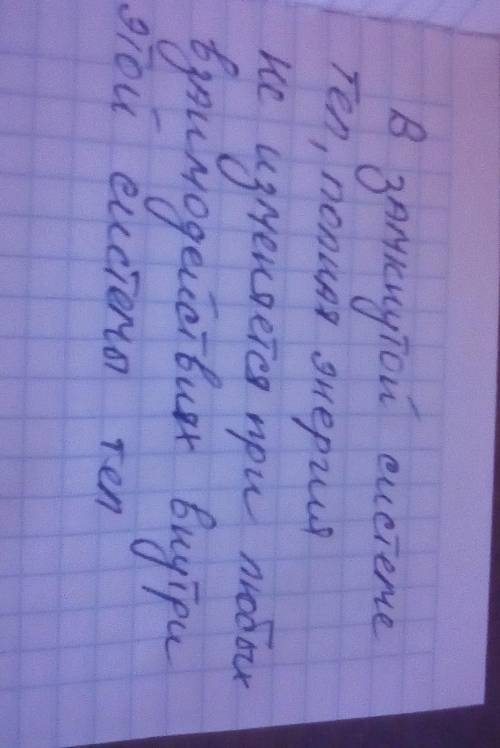 В замкнутой системе
тел, полная энергия
не изменяется при любых
взаимодействиях внутри
этой системы тел